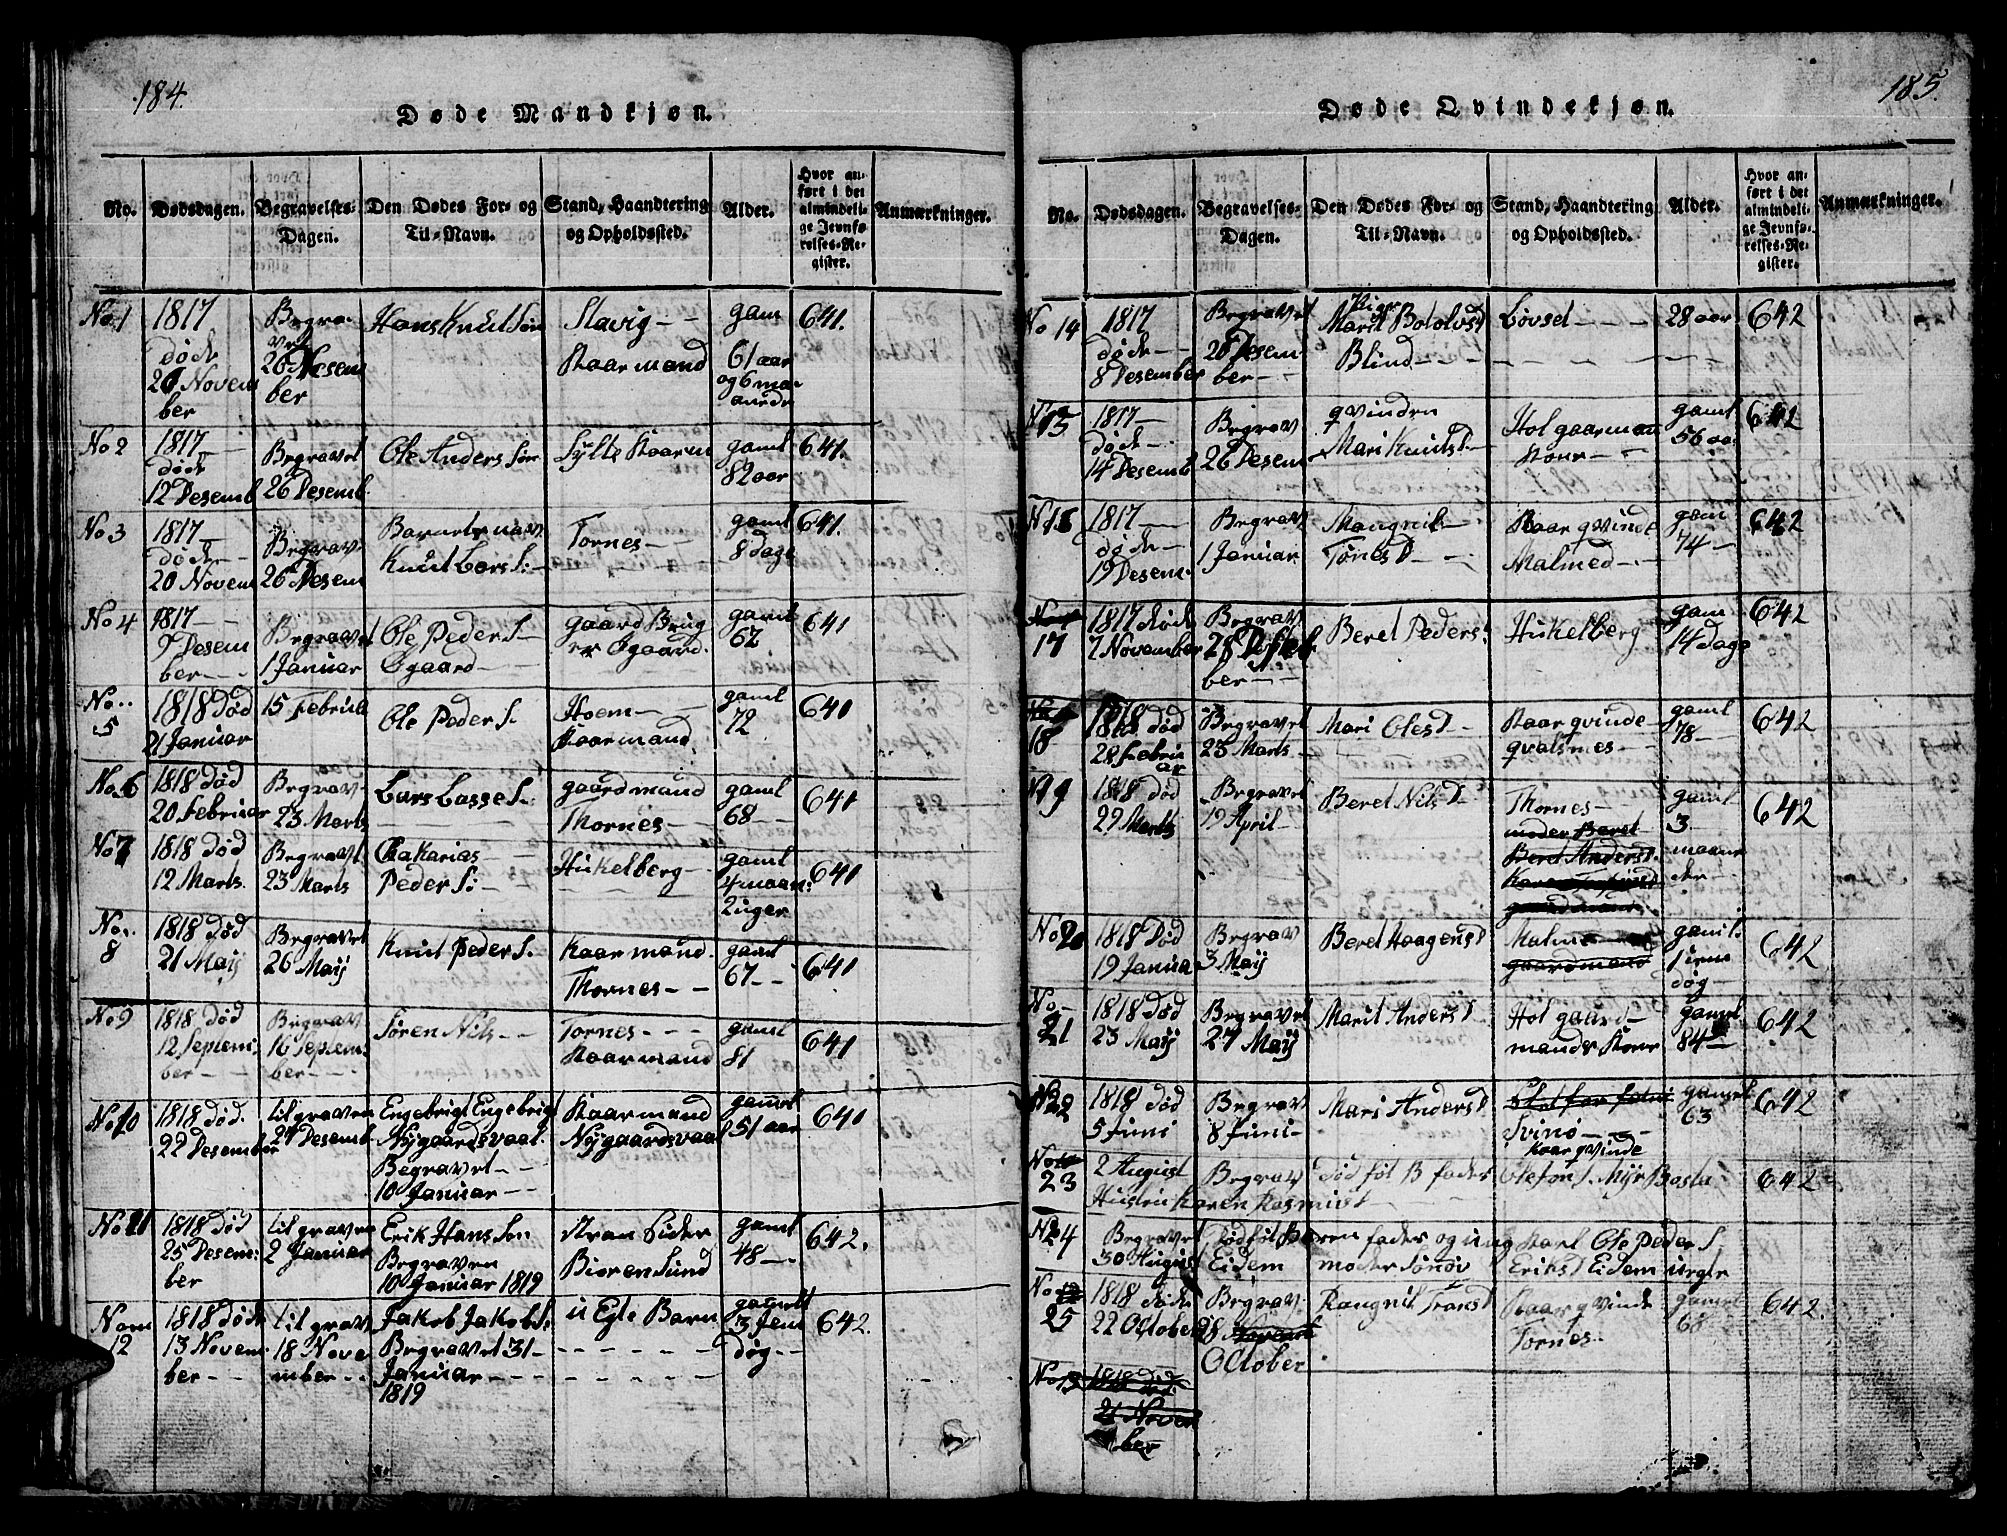 184.
Døde Mandkjøn.
No.
Dødsdagen.
Begravelses-
Dagen.
Den Dødes For- og
Til-Navn.
Stand, Haandtering
og Opholdssted.
Alder.
Hvor an-
ført i det
almindeli-
ge Jevnfø-
relses-Re-
gister.
Anmærkninger.
No 1
1817
døde
26 Novem
ber
Begra-
vet
26 Desem
ber
Hans Knut Søn
Slavig - -
Kaarmand
gam
61 aar
og 6 ma-
anede
641.
No 2
1817 -
døde
12 Desemb.
Begravet
26 Desemb.
Ole Anders Søn
Sylte Kaarm
gaml
82 aar
641.
No 3
1817 -
døde -
20 Novem
Begrav
26 Desem
Barnets nav
Knut Lars S: -
Tornes - -
gaml
8 dage
641.
No 4
1817 - -
9 Desem
ber - -
Begravet
1 Januar
Ole Peder S -
Ogaard - -
gaard Brug
er Ogaard.
gaml
62
641
No..
5
1818 Død
21 Januar
15 Februa
Ole Peder S.
Hoem - -
Kaarmand.
gaml
72
641
No 6
1818 død
20 Februar
Begrav -
23 Marts
Lars Lasse S:
gaardmand
Thornes - -
gaml
68 - -
641
No 7
1818 død
12 Marts.
Begravet
23 Marts
Chakarias - -
Peder S: -
Hukelberg -
gaml
4 maan:
2 uger
641
No..
8
1818 død
21 Maij
Begravet
26 Maij
Knut Peder S.
Kaarmand.
Thornes - -
gaml
67 - -
641
No 9
1818 død
12 Septem:
ber - -
Begrav
16 Septem:
ber - - -
Søren Nils - -
Tornes - - -
Kaarmand
gaml
81
641
No 10
1818 død.
22 Desember
til graven
27 Desemb.
Engebrigt Engebrigt
Nygaardsvaal
Begravet - -
10 Januar - -
Kaarmand
Nygaardsvaal
gamel
51 aar
641
No 11
1818 død
25 Desem:
ber
til graven
2 Januar
Erik Hans Søn
Begraven
10 Januar 1819
Stran Sider
Biørensund
gaml
48 - -
642.
Nom
12
1818 døde
13 Novem
ber - -
til grav
18 Nove
mber - -
Jakob Jakob S:
Begravet 31 -
Januar - - -
1819
u Egte Barn
gamelt
3 Jem
døg - -
642.
185.
Døde Qvindekjøn.
No.
Dødsdagen.
Begravelses-
Dagen.
Den Dødes For- og
Til-Navn.
Stand, Haandtering
og Opholdssted.
Alder.
Hvor an-
ført i det
almindeli-
ge Jevnfø-
relses-Re-
gister.
Anmærkninger.
No 14
1817
døde - -
8 Desember
Begravet
26 Desem
ber - -
Pige
Marit Botolvsd
Blind - -
Løvset - - -
28 aar
642
No 15
1817 -
døde -
14 Desemb
Begrav
26 Desem
qvinden
Mari Knutsd -
Hol gaarman
Kone - -
gaml
56 aa
642
No 16
1817 -
døde -
19 Desem.
Begrav
1 Januar
Mangnil -
Tønes D - -
Kaar qvinde
Malmed - -
gam
74 -
642
17
1817 døde
7 November
Begrav
28
ber - -
Beret Peders:
Hukelberg
gam
14 Dage
642
18
1818 død
28 Februa
ar
Begravet
23 Marts -
Mari Olesd -
Kaar qvinde
qvalsnes - -
gaml
78 -
642
No 19
1818 død
29 Marts
Begravet
19 April -
Beret Nilsd -
Thornes -
moder Beret
Beret Andersd.
gaardmand
gaml
3 -
maane
der -
642
No 20
1818 Død
19 Janua
Begrav
3 Maij
Beret Haagensd
Malme
gaardmand
gaml.
1 iem
døg -
642
No -
21
1818 Død
23 Maij
Begravet
27 Maij
Marit Andersd
Hol gaard -
mands Kone
gamel
84 -
642
No 22
1818 død
5 Juni
Begrav
8 Juni -
Mari Andersd
Svinø - - -
Kaar qvinde
gamel
63
642
No
23
2 August
Begrav
Død føt B fader
Myr Bosta
642
Hustru Karen Rasmusd -
No 24
Begravet
30 August
Død føt Baren fader og ung Karl Ole Peder S.
Eidem moder Sønøv Eriksd Eidem
No
25
1818 døde
22 October
Begrav.
28
October
Rangnil Transd
Kaar qvinde
Tornes -
gamel
68 -
642.
No 13
1818 død
21 Novem
ber